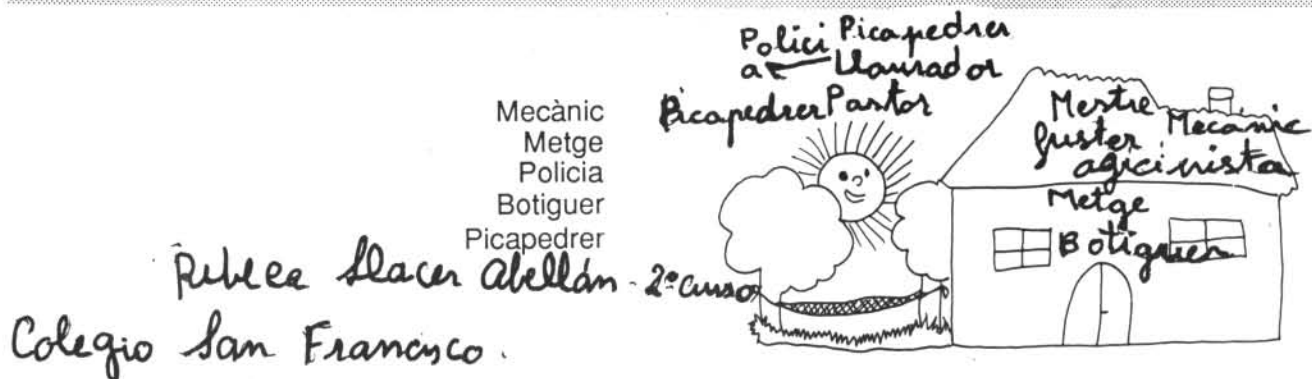 Mecànic
Metge
Policia
Botiguer
Picapedrer
Polici Picapedrer
a Llaurador
Picapedrer Pastor
Mestre
fuster Mecanic
agicinista
Metge
Botiguer
Llacer Abellán - 2º curso
Colegio San Francisco.